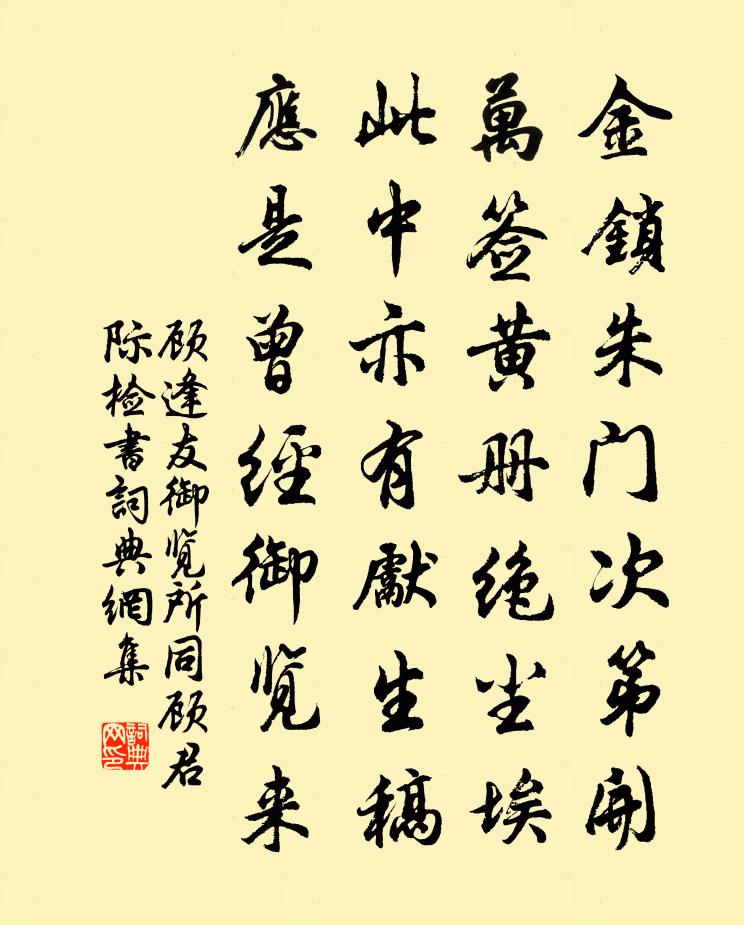 金鎖朱门次第開
萬签黄册绝尘埃
此中亦有獻生稿
應是曾經御览来
顾逢友御览所同顾君
际检書詞典網集
詞典网印